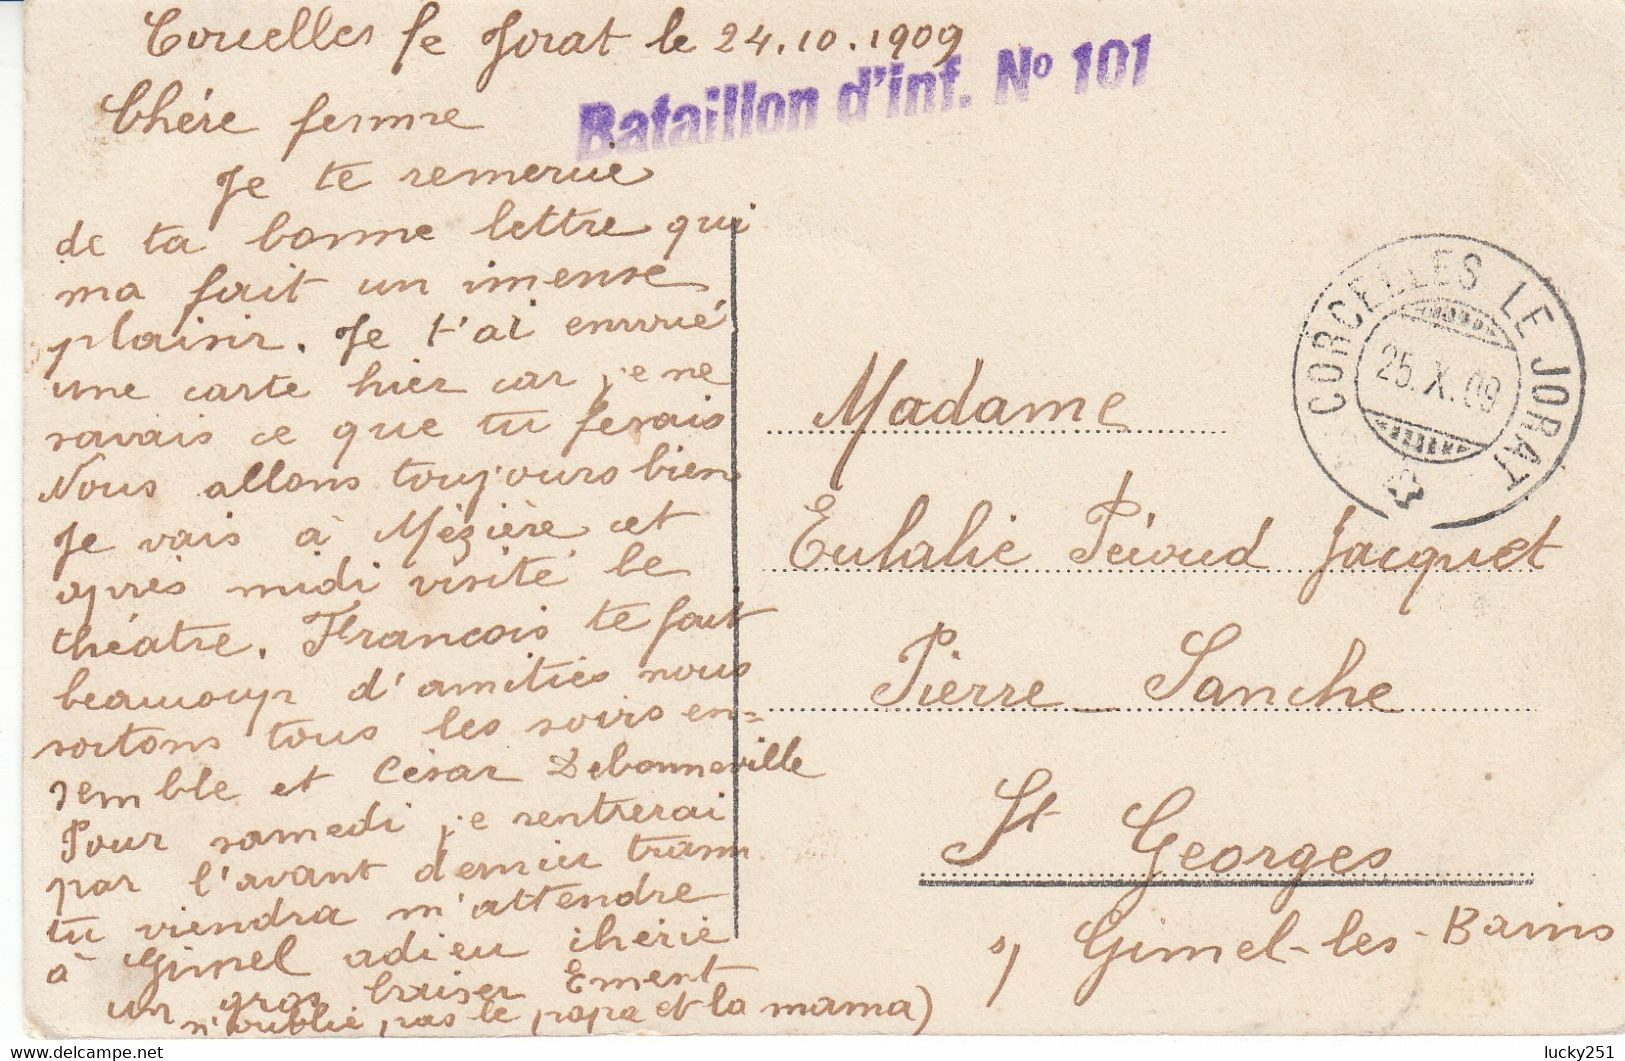 Corcelles le Jorat le 24.10.1909
Bataillon d'inf. No 101
Chére femme
Je te remercie
de ta bonne lettre qui
ma fait un imense
plaisir. Je t'ai envoié
une carte hier car je ne
savais ce que tu fesais
Nous allons toujours bien
Je vais à Mézière cet
après midi visité le
théatre. Francois te fait
beaucoup d'amitiés nous
sortons tous les soirs en=
semble et César Debonneville
Pour samedi je rentrerai
par l'avant dernier tram
tu viendra m'attendre
à Gimel adieu cherie
un gros baiser Ement
n'oublie pas le papa et la mama)
CORCELLES LE JORAT
25.X.09
Madame
Eulalie Péroud Jacquet
Pierre_Sanche
St Georges
s/ Gimel-les-Bains
lucky251